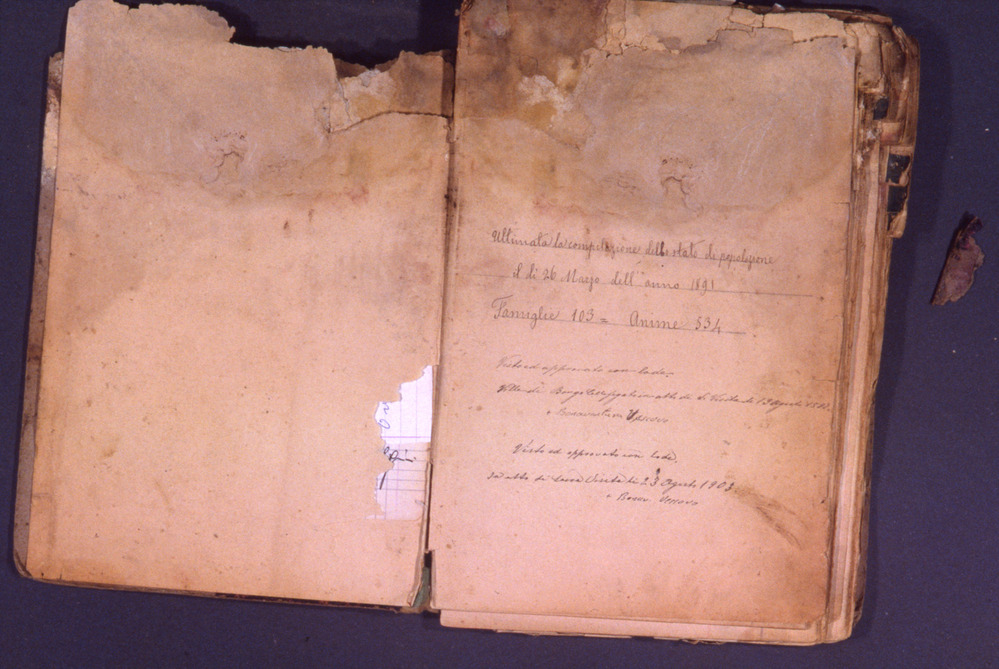 Ultimata la compilazione dello stato di popolazione
il dì 26 Marzo dell' anno 1891
Famiglie 103 = Anime 534
Visto ed approvato con lode.
Villa di Borgo di 13 Agosto
+ Vescovo
Visto ed approvato con lode,
In atto di Sacra Visita li 23 Agosto 1903.
+ Bonav Vescovo